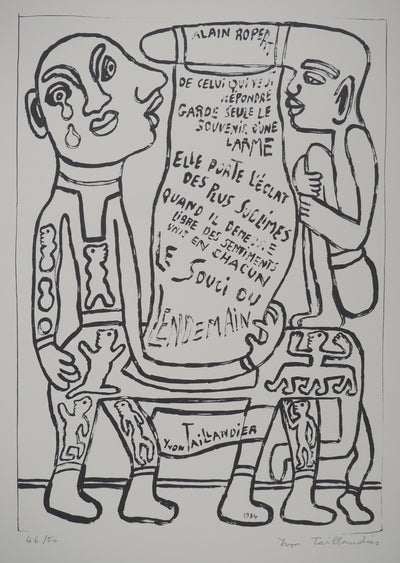 ALAIN ROPERT
DE CELUI QUI VEUT
RÉPONDRE
GARDE SEULE LE
SOUVENIR D'UNE
LARME
ELLE PORTE L'ÉCLAT
DES PLUS SUBLIMES
QUAND IL DEMEURE
LIBRE DES SENTIMENTS
UNIS EN CHACUN
LE SOUCI DU
LENDEMAIN
YVON TAILLANDIER
1984
46/50 Yvon Taillandier